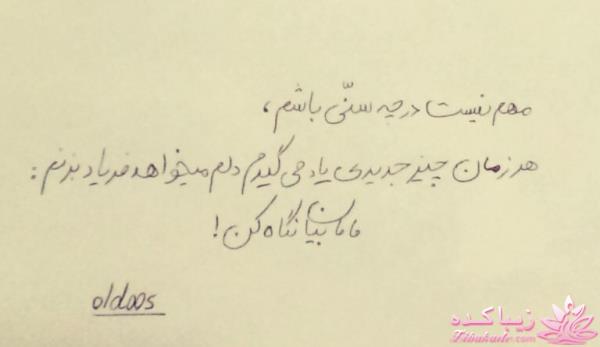 مهم نیست در چه سنّی باشم،
هر زمان چیز جدیدی یاد می گیرم دلم میخواهد فریاد بزنم:
مامان بیا نگاه کن!
oldoos
زیباکده
Zibakade.com